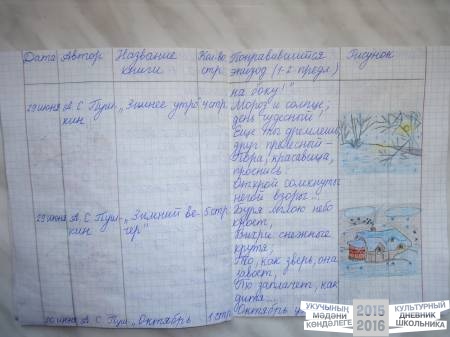 Дата Автор Название книги Кол-во стр. Понравившийся эпизод (1-2 предл.) Рисунок
на боку!"
29 июня А. С. Пуш- „Зимнее утро" 4 стр. Мороз и солнце;
кин день чудесный!
Еще ты дремлешь,
друг прелестный –
Пора, красавица,
проснись:
Открой сомкнуты
негой взоры...
29 июня А. С. Пуш- „Зимний ве- 5 стр. Буря мглою небо
кин чер" кроет,
Вихри снежные
крутя;
То, как зверь, она
завоет,
То заплачет, как
дитя...
30 июня А. С. Пуш- „Октябрь 1 стр. Октябрь
УКУЧЫНЫҢ
МӘДӘНИ
КӨНДӘЛЕГЕ
2015
2016
КУЛЬТУРНЫЙ
ДНЕВНИК
ШКОЛЬНИКА